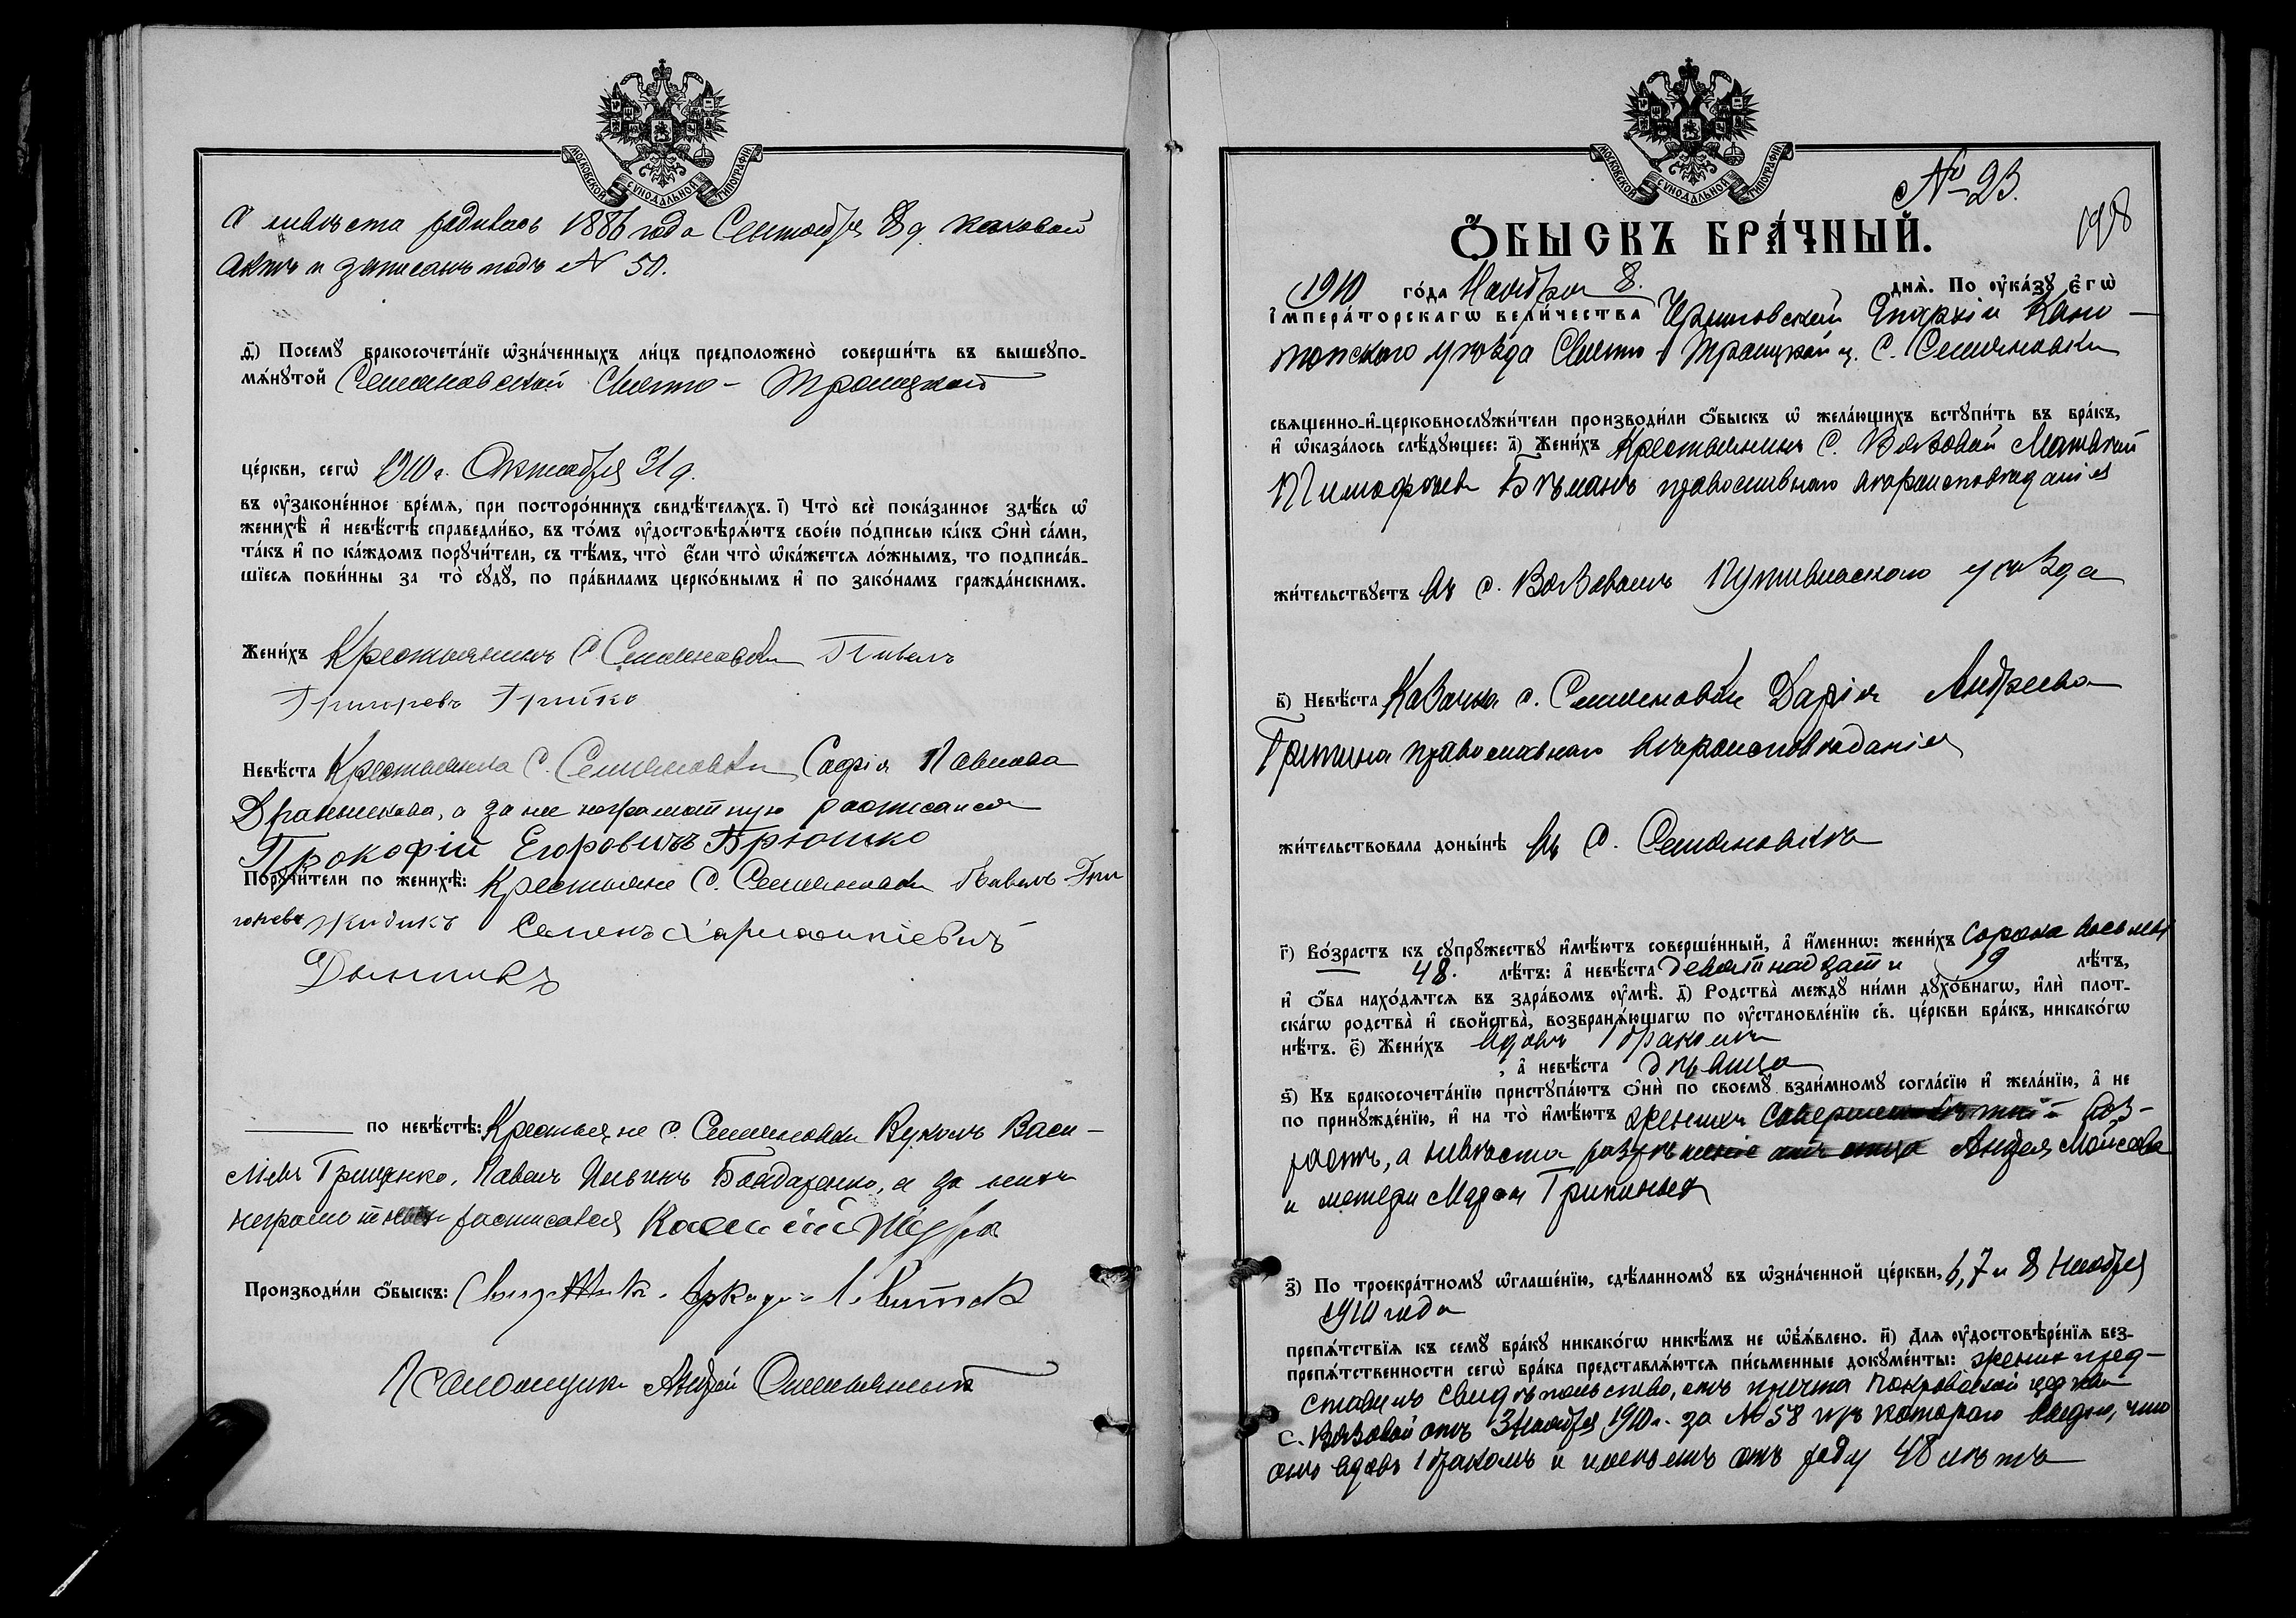 МОСКОВСКОЙ СѴНОДАЛЬНОЙ ТИПОГРАФІИ
а невѣста родилась 1886 года Сентября 8 д. каковой
актъ и записанъ подъ № 50.
Ѳ҃) Посемꙋ̀ бракосочета́нїе ѡ҆зна́ченныхъ ли́цъ предположено̀ соверши́ть въ вышеꙋпо-
мѧ́нꙋтой Семяновской Свято-Троицкой
це́ркви, сегѡ̀ 1910 г. Октября 31 д.
въ ᲂу҆законе́нное вре́мѧ, при посторо́ннихъ свидѣ́телѧхъ. і҃) Что̀ всѐ пока́занное здѣ́сь ѡ҆
женихѣ̀ и҆ невѣ́стѣ справедли́во, въ то́мъ ᲂу҆достовѣрѧ́ютъ свое́ю по́дписью ка́къ ѻ҆нѝ са́ми,
та́къ и҆ по ка́ждомъ порꙋчи́тели, съ тѣ́мъ, что̀ є҆́сли что̀ ѡ҆ка́жетсѧ ло́жнымъ, то подписа́в-
шїесѧ пови́нны за то̀ сꙋдꙋ̀, по пра́виламъ церко́внымъ и҆ по зако́намъ гражда́нскимъ.
Жени́хъ Крестьянинъ с. Семяновки Павелъ
Григорьевъ
Невѣ́ста Крестьянка с. Семяновки Софія Павлова
а за нее неграмотную росписался
Прокофій Егоровичъ Брюшко
Порꙋчи́тели по женихѣ̀: Крестьяне с. Семяновки Павелъ Гри
горьевъ Семенъ
по невѣ́стѣ: Крестьяне с. Семяновки Вуколъ Васи-
ліевъ Грищенко, Павелъ Бондаренко, а за нихъ
неграмотныхъ росписался
Производи́ли ѻ҆́быскъ: Свящ.
Псаломщикъ Андрей
МОСКОВСКОЙ СѴНОДАЛЬНОЙ ТИПОГРАФІИ
№ 23.
198
Ѻ҆́БЫСКЪ БРА́ЧНЫЙ.
1910 го́да Ноября 8. днѧ̀. По ᲂу҆ка́зꙋ є҆гѡ̀
і҆мпера́торскагѡ вели́чества Черниговской Епархіи Коно-
топского уѣзда Свято-Троицкой ц. с. Семяновки
свѧщенно-и҆-церковнослꙋжи́тели производи́ли ѻ҆́быскъ ѡ҆ жела́ющихъ встꙋпи́ть въ бра́къ,
и҆ ѡ҆каза́лось слѣ́дꙋющее: а҃) Жени́хъ Крестьянинъ с. Вязовой Матвѣй
Тимофѣевъ православнаго вѣроисповѣданія
жи́тельствꙋетъ въ с. Вязовомъ Путивльскаго уѣзда
в҃) Невѣ́ста Казачка с. Семяновки Дарія Андреева
православнаго вѣроисповѣданія
жи́тельствовала доны́нѣ въ с. Семяновкѣ
г҃) Во́зрастъ къ сꙋпрꙋ́жествꙋ и҆мѣ́ютъ соверше́нный, а҆ и҆́меннѡ: жени́хъ сорока восьми
48. лѣ́тъ: а҆ невѣ́ста девятнадцати 19 лѣ́тъ,
и҆ ѻ҆́ба нахо́дѧтсѧ въ здра́вомъ ᲂу҆мѣ̀. д҃) Родства̀ междꙋ ни́ми дꙋхо́внагѡ, и҆лѝ плот-
ска́гѡ родства̀ и҆ свойства̀, возбранѧ́ющагѡ по ᲂу҆становле́нїю св. це́ркви бра́къ, никако́гѡ
нѣ́тъ. є҃) Жени́хъ вдовъ 1 бракомъ
, а҆ невѣ́ста дѣвица
ѕ҃) Къ бракосочета́нїю пристꙋпа́ютъ ѻ҆нѝ по своемꙋ̀ взаи́мномꙋ согла́сїю и҆ жела́нїю, а҆ не
по принꙋжде́нїю, и҆ на то̀ и҆мѣ́ютъ женихъ воз-
растъ, а невѣста Андрея
и матери
з҃) По троекра́тномꙋ ѡ҆глаше́нїю, сдѣ́ланномꙋ въ ѡ҆зна́ченной це́ркви, 6, 7 и 8 Ноября
1910 года
препѧ́тствїѧ къ семꙋ̀ бра́кꙋ никако́гѡ никѣ́мъ не ѡ҆б̾ѧ́влено. и҃) Длѧ ᲂу҆достовѣре́нїѧ без-
препѧ́тственности сегѡ̀ бра́ка представлѧ́ютсѧ пи́сьменные докꙋме́нты: женихъ пред-
ставилъ свидѣтельство, отъ причта Покровской церкви
с. Вязовой отъ 3 Ноября 1910 г. за № 58 изъ котораго видно, что
онъ вдовъ 1 бракомъ и имѣетъ отъ роду 48 лѣтъ